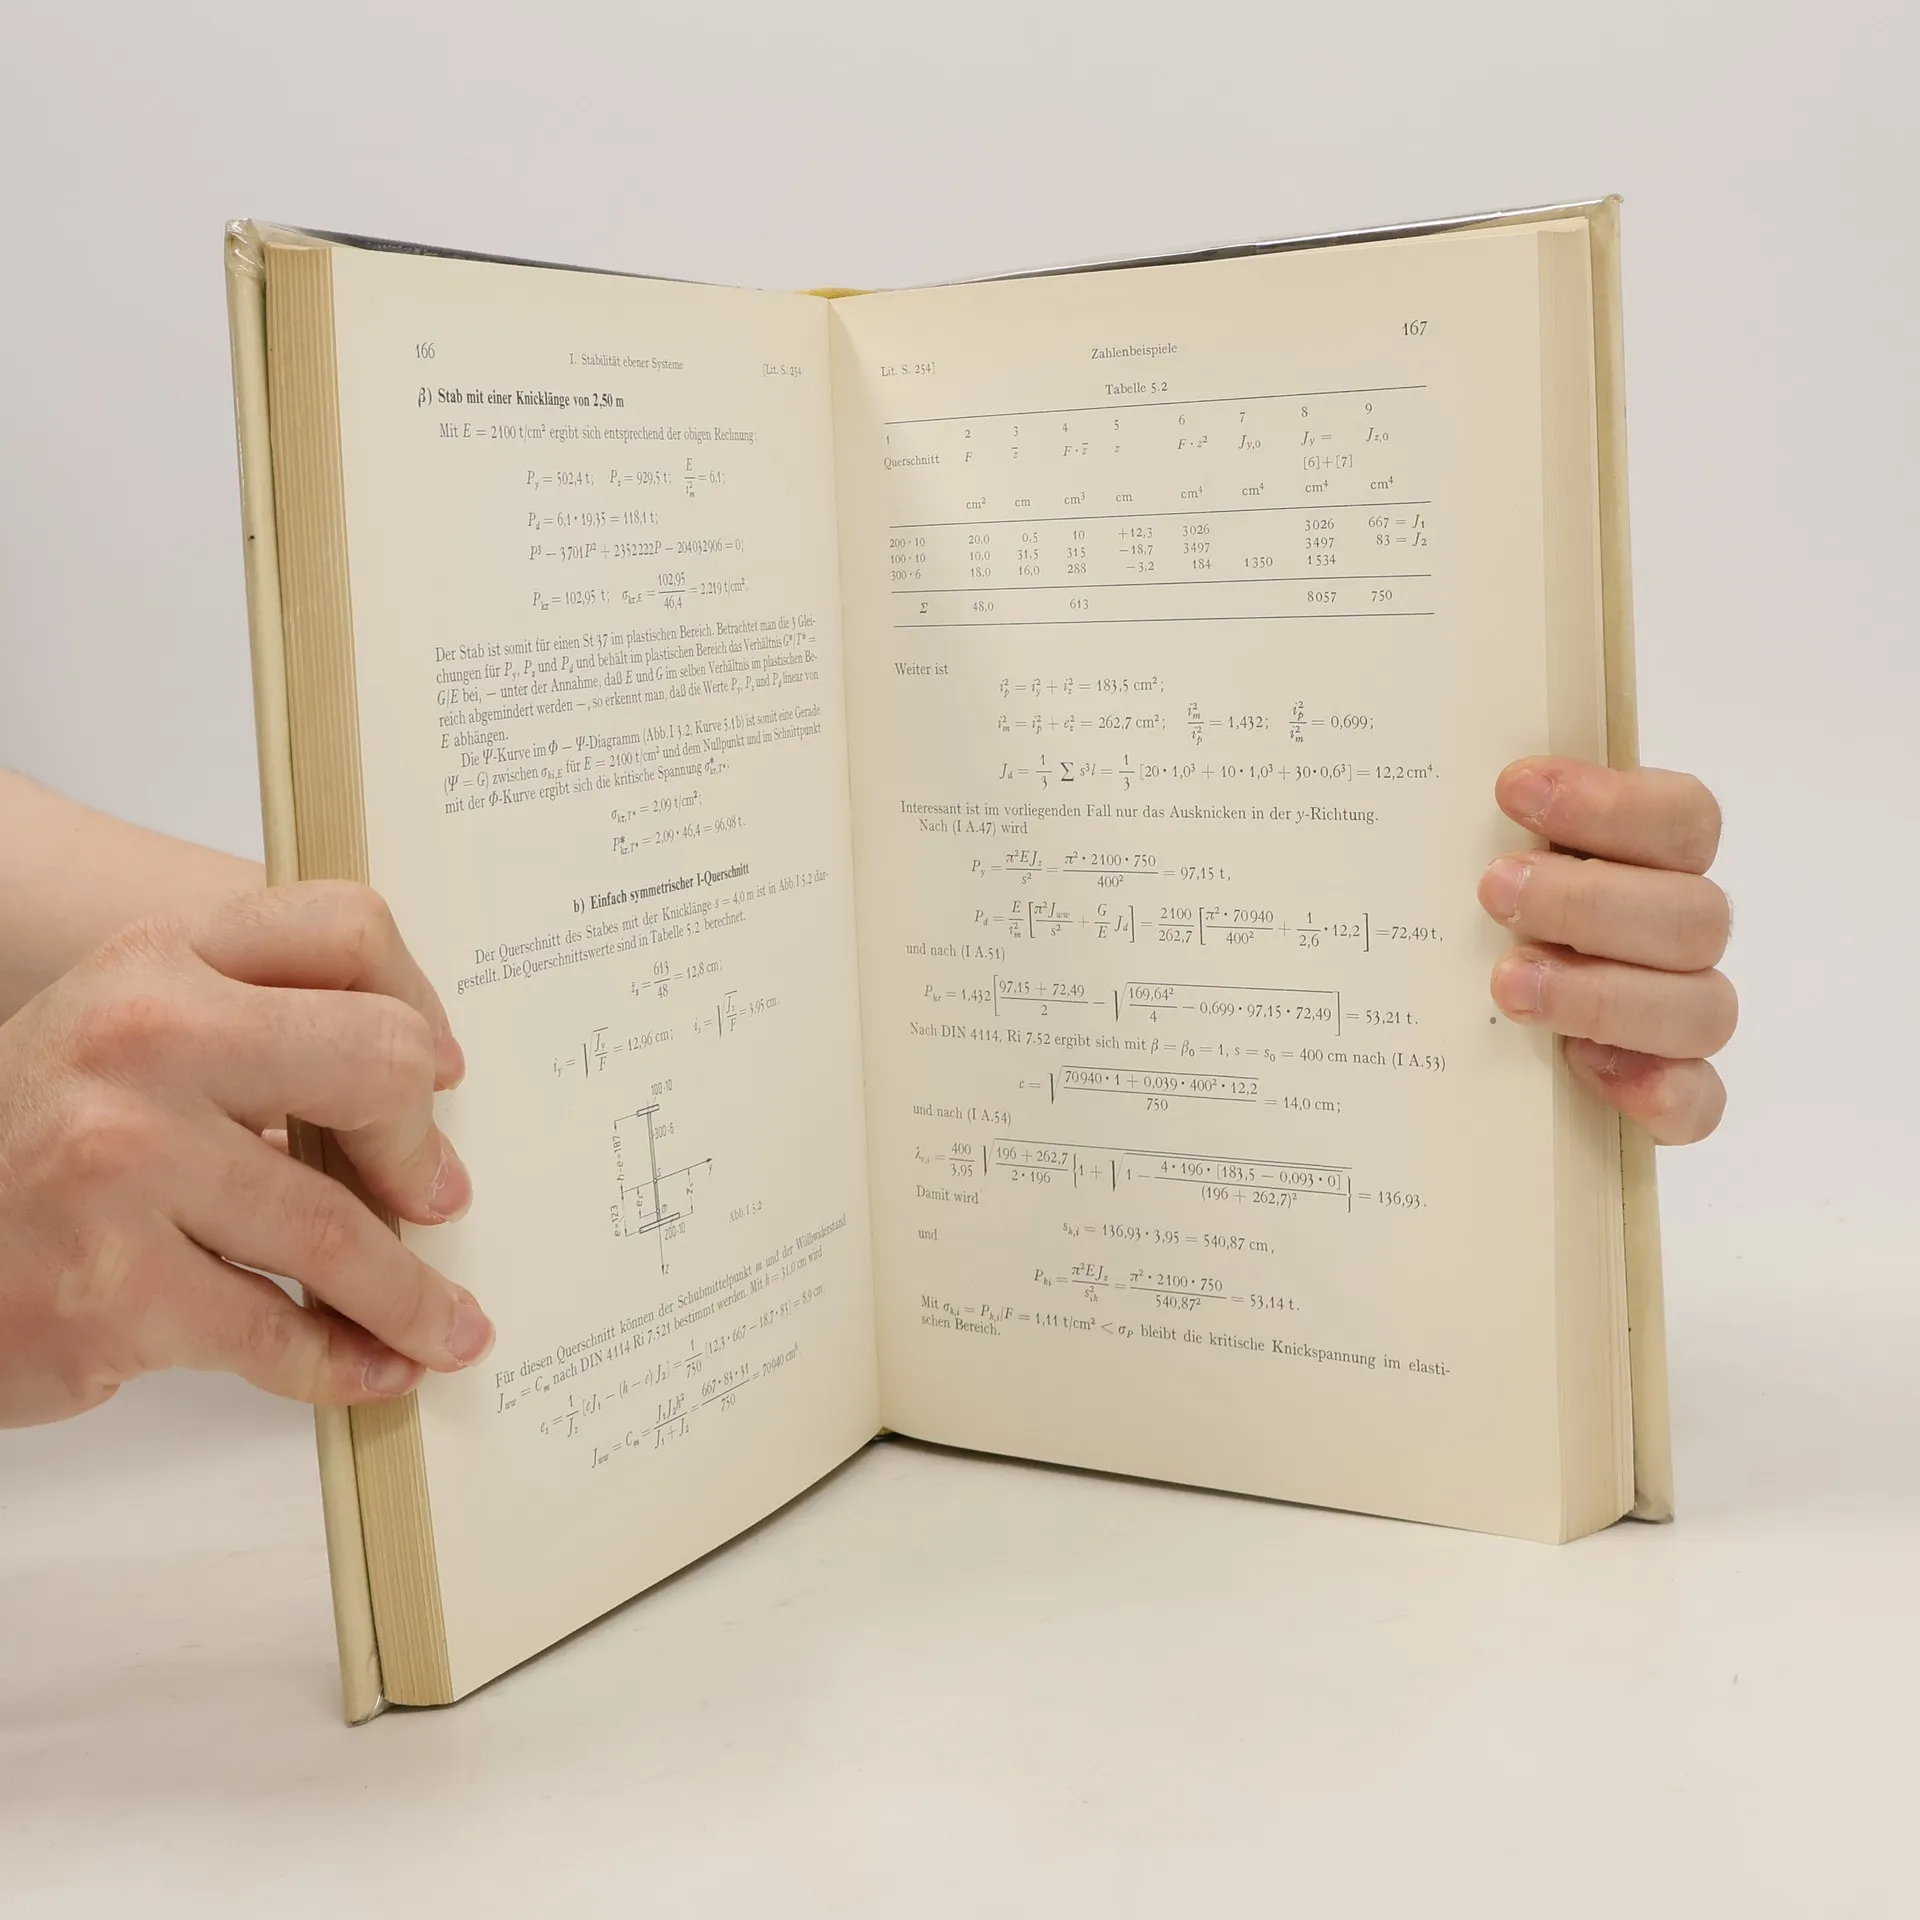 166
I. Stabilität ebener Systeme
[Lit. S. 254
β) Stab mit einer Knicklänge von 2,50 m
Mit E = 2100 t/cm² ergibt sich entsprechend der obigen Rechnung:
P_y = 502,4 t; P_z = 929,5 t; E/i²_m = 6,1;
P_d = 6,1 · 19,35 = 118,1 t;
P³ − 3701P² + 2352222P − 204032906 = 0;
P_kr = 102,95 t; σ_kr,E = 102,95/46,4 = 2,219 t/cm².
Der Stab ist somit für einen St 37 im plastischen Bereich. Betrachtet man die 3 Glei-
chungen für P_y, P_z und P_d und behält im plastischen Bereich das Verhältnis G*/T* =
G/E bei, — unter der Annahme, daß E und G im selben Verhältnis im plastischen Be-
reich abgemindert werden —, so erkennt man, daß die Werte P_y, P_z und P_d linear von
E abhängen.
Die Ψ-Kurve im Φ — Ψ-Diagramm (Abb. I 3.2, Kurve 5.1 b) ist somit eine Gerade
(Ψ = G) zwischen σ_ki,E für E = 2100 t/cm² und dem Nullpunkt und im Schnittpunkt
mit der Φ-Kurve ergibt sich die kritische Spannung σ*_kr,T*:
σ_kr,T* = 2,09 t/cm²;
P*_kr,T* = 2,09 · 46,4 = 96,98 t.
b) Einfach symmetrischer I-Querschnitt
Der Querschnitt des Stabes mit der Knicklänge s = 4,0 m ist in Abb. I 5.2 dar-
gestellt. Die Querschnittswerte sind in Tabelle 5.2 berechnet.
z̄_s = 613/48 = 12,8 cm;
i_y = √(J_y/F) = 12,96 cm; i_z = √(J_z/F) = 3,95 cm.
100·10
300·6
h-e=187
e=123
s
y
m
200·10
z
Abb. I 5.2
Für diesen Querschnitt können der Schubmittelpunkt m und der Wölbwiderstand
J_ww = C_m nach DIN 4114 Ri 7.521 bestimmt werden. Mit h = 31,0 cm wird
e_z = 1/J_z [eJ_1 − (h − e) J_2] = 1/750 [12,3 · 667 − 18,7 · 83] = 8,9 cm.
J_ww = C_m = J_1J_2h²/(J_1 + J_2) = 667 · 83 · 31/750 = 70940 cm⁶.
167
Zahlenbeispiele
Lit. S. 254]
Tabelle 5.2
1 2 3 4 5 6 7 8 9
Querschnitt F z̄ F · z̄ z F · z² J_y,0 J_y = J_z,0
[6]+[7]
cm² cm cm³ cm cm⁴ cm⁴ cm⁴ cm⁴
200·10 20,0 0,5 10 +12,3 3026 3026 667 = J_1
100·10 10,0 31,5 315 −18,7 3497 3497 83 = J_2
300·6 18,0 16,0 288 −3,2 184 1350 1534
Σ 48,0 613 8057 750
Weiter ist
i²_p = i²_y + i²_z = 183,5 cm²;
i²_m = i²_p + e²_z = 262,7 cm²; i²_m/i²_p = 1,432; i²_p/i²_m = 0,699;
J_d = 1/3 ∑ s³l = 1/3 [20 · 1,0³ + 10 · 1,0³ + 30 · 0,6³] = 12,2 cm⁴.
Interessant ist im vorliegenden Fall nur das Ausknicken in der y-Richtung.
Nach (I A.47) wird
P_y = π²EJ_z/s² = π² · 2100 · 750/400² = 97,15 t,
P_d = E/i²_m [π²J_ww/s² + G/E J_d] = 2100/262,7 [π² · 70940/400² + 1/2,6 · 12,2] = 72,49 t,
und nach (I A.51)
P_kr = 1,432 [(97,15 + 72,49)/2 − √(169,64²/4 − 0,699 · 97,15 · 72,49)] = 53,21 t.
Nach DIN 4114, Ri 7.52 ergibt sich mit β = β_0 = 1, s = s_0 = 400 cm nach (I A.53)
c = √((70940 · 1 + 0,039 · 400² · 12,2)/750) = 14,0 cm;
und nach (I A.54)
λ_v,i = 400/3,95 √((196 + 262,7)/(2 · 196) {1 + √(1 − 4 · 196 · [183,5 − 0,093 · 0]/(196 + 262,7)²)}) = 136,93.
Damit wird
s_k,i = 136,93 · 3,95 = 540,87 cm,
und
P_ki = π²EJ_z/s²_ik = π² · 2100 · 750/540,87² = 53,14 t.
Mit σ_k,i = P_k,i/F = 1,11 t/cm² < σ_P bleibt die kritische Knickspannung im elasti-
schen Bereich.